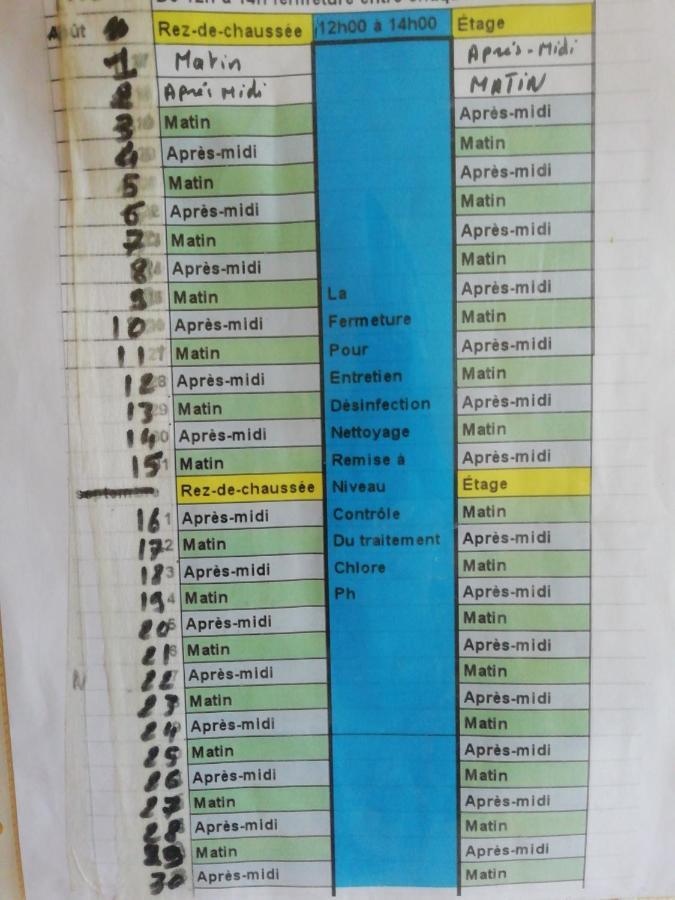 De 12h à 14h fermeture entre
Août Rez-de-chaussée 12h00 à 14h00 Étage
1 Matin Après-Midi
Après Midi MATIN
3 Matin Après-midi
4 Après-midi Matin
5 Matin Après-midi
6 Après-midi Matin
7 Matin Après-midi
8 Après-midi Matin
9 Matin La Après-midi
10 Après-midi Fermeture Matin
11 Matin Pour Après-midi
12 Après-midi Entretien Matin
13 Matin Dèsinfection Après-midi
14 Après-midi Nettoyage Matin
15 Matin Remise à Après-midi
septembre Rez-de-chaussée Niveau Étage
16 Après-midi Contrôle Matin
17 Matin Du traitement Après-midi
18 Après-midi Chlore Matin
19 Matin Ph Après-midi
20 Après-midi Matin
21 Matin Après-midi
N 22 Après-midi Matin
23 Matin Après-midi
24 Après-midi Matin
25 Matin Après-midi
26 Après-midi Matin
27 Matin Après-midi
28 Après-midi Matin
29 Matin Après-midi
30 Après-midi Matin